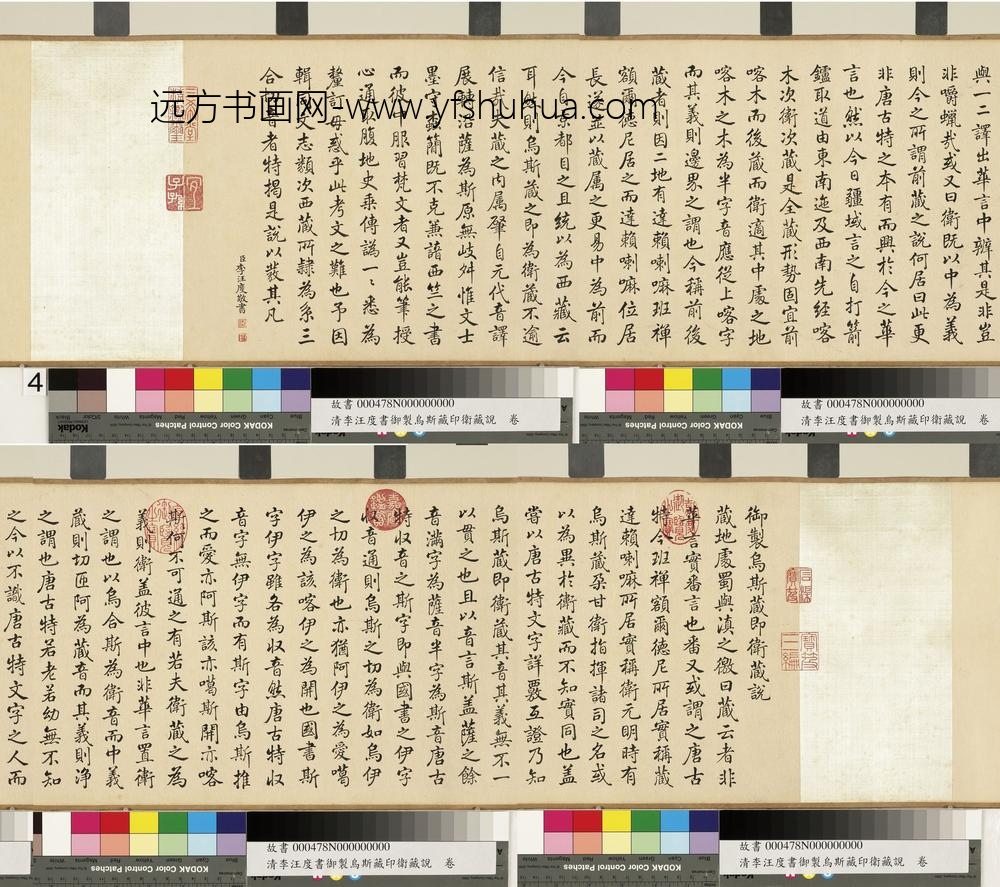 御製烏斯藏即衛藏說
藏地處蜀與滇之徼曰藏云者非
華言實番言也番又或謂之唐古
特今班禪額爾德尼所居實稱藏
達賴喇嘛所居實稱衛元明時有
烏斯藏朶甘衛指揮諸司之名或
以為異於衛藏而不知實同也蓋
嘗以唐古特文字詳覈互證乃知
烏斯藏即衛藏其音其義無不一
以貫之也且以音言斯蓋薩之餘
音滿字為薩音半字為斯音唐古
特收音之斯字即與國書之伊字
收音通則烏斯之切為衛如烏伊
之切為衛也亦猶阿伊之為愛噶
伊之為該喀伊之為開也國書斯
字伊字雖各為收音然唐古特收
音字無伊字而有斯字由烏斯推
之而愛亦阿斯該亦噶斯開亦喀
斯何不可通之有若夫衛藏之為
義則衛蓋彼言中也非華言置衛
之謂也以烏合斯為衛音而中義
藏則切匝阿為藏音而其義則淨
之謂也唐古特若老若幼無不知
之今以不識唐古特文字之人而
與一二譯出華言中辨其是非豈
非嚼蠟哉或又曰衛既以中為義
則今之所謂前藏之說何居曰此更
非唐古特之本有而興於今之華
言也然以今日疆域言之自打箭
鑪取道由東南迤及西南先經喀
木次衛次藏是全藏形勢固宜前
喀木而後藏而衛適其中處之地
喀木之木為半字音應從上喀字
而其義則邊界之謂也今稱前後
藏者則因二地有達賴喇嘛班禪
額爾德尼居之而達賴喇嘛位居
長遂並以藏屬之更易中為前而
今自京都目之且統以為西藏云
耳然則烏斯藏之即為衛藏不逾
信哉夫大藏之内属肇自元代音譯
展轉沿薩為斯原無歧舛惟文士
墨守蠹簡既不克兼諳西竺之書
而彼中服習梵文者又豈能筆授
心通以腹地史乘傳譌一一悉為
釐訂毋惑乎此考文之難也予因
輯同文志類次西藏所隸為系三
合切音者特揭是說以裝其凡
臣李汪度敬書
远方书画网-www.yfshuhua.com
4
故書 000478N000000000
清李汪度書御製烏斯藏印衛藏說 卷
故書 000478N000000000
清李汪度書御製烏斯藏印衛藏說 卷
故書 000478N000000000
清李汪度書御製烏斯藏印衛藏說 卷
故書 000478N000000000
清李汪度書御製烏斯藏印衛藏說 卷
KODAK Color Control Patches
KODAK Color Control Patches
KODAK Color Control Patches
KODAK Color Control Patches